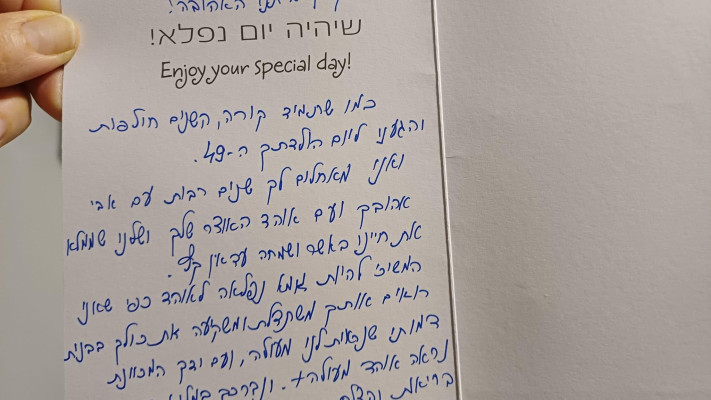 האהובה!
שיהיה יום נפלא!
Enjoy your special day!
כמו שתמיד קורה, השנים חולפות
והגענו ליום הולדתך ה-49.
ואנו מאחלים לך שנים רבות עם אבי
אהובך ועם אוהד האוצר שלך ושלנו שממלא
את חיינו באשר ושמחה עד אין קץ.
המשיכי להיות אמא נפלאה לאוהד כפי שאנו
רואים אותך משתדלת ומשקיעה את כולך בבנית
דמותו שנראית לנו מעולה, ועם ידך המכוונת
נראה אוהד מעולה+. ונברכך
בריאות